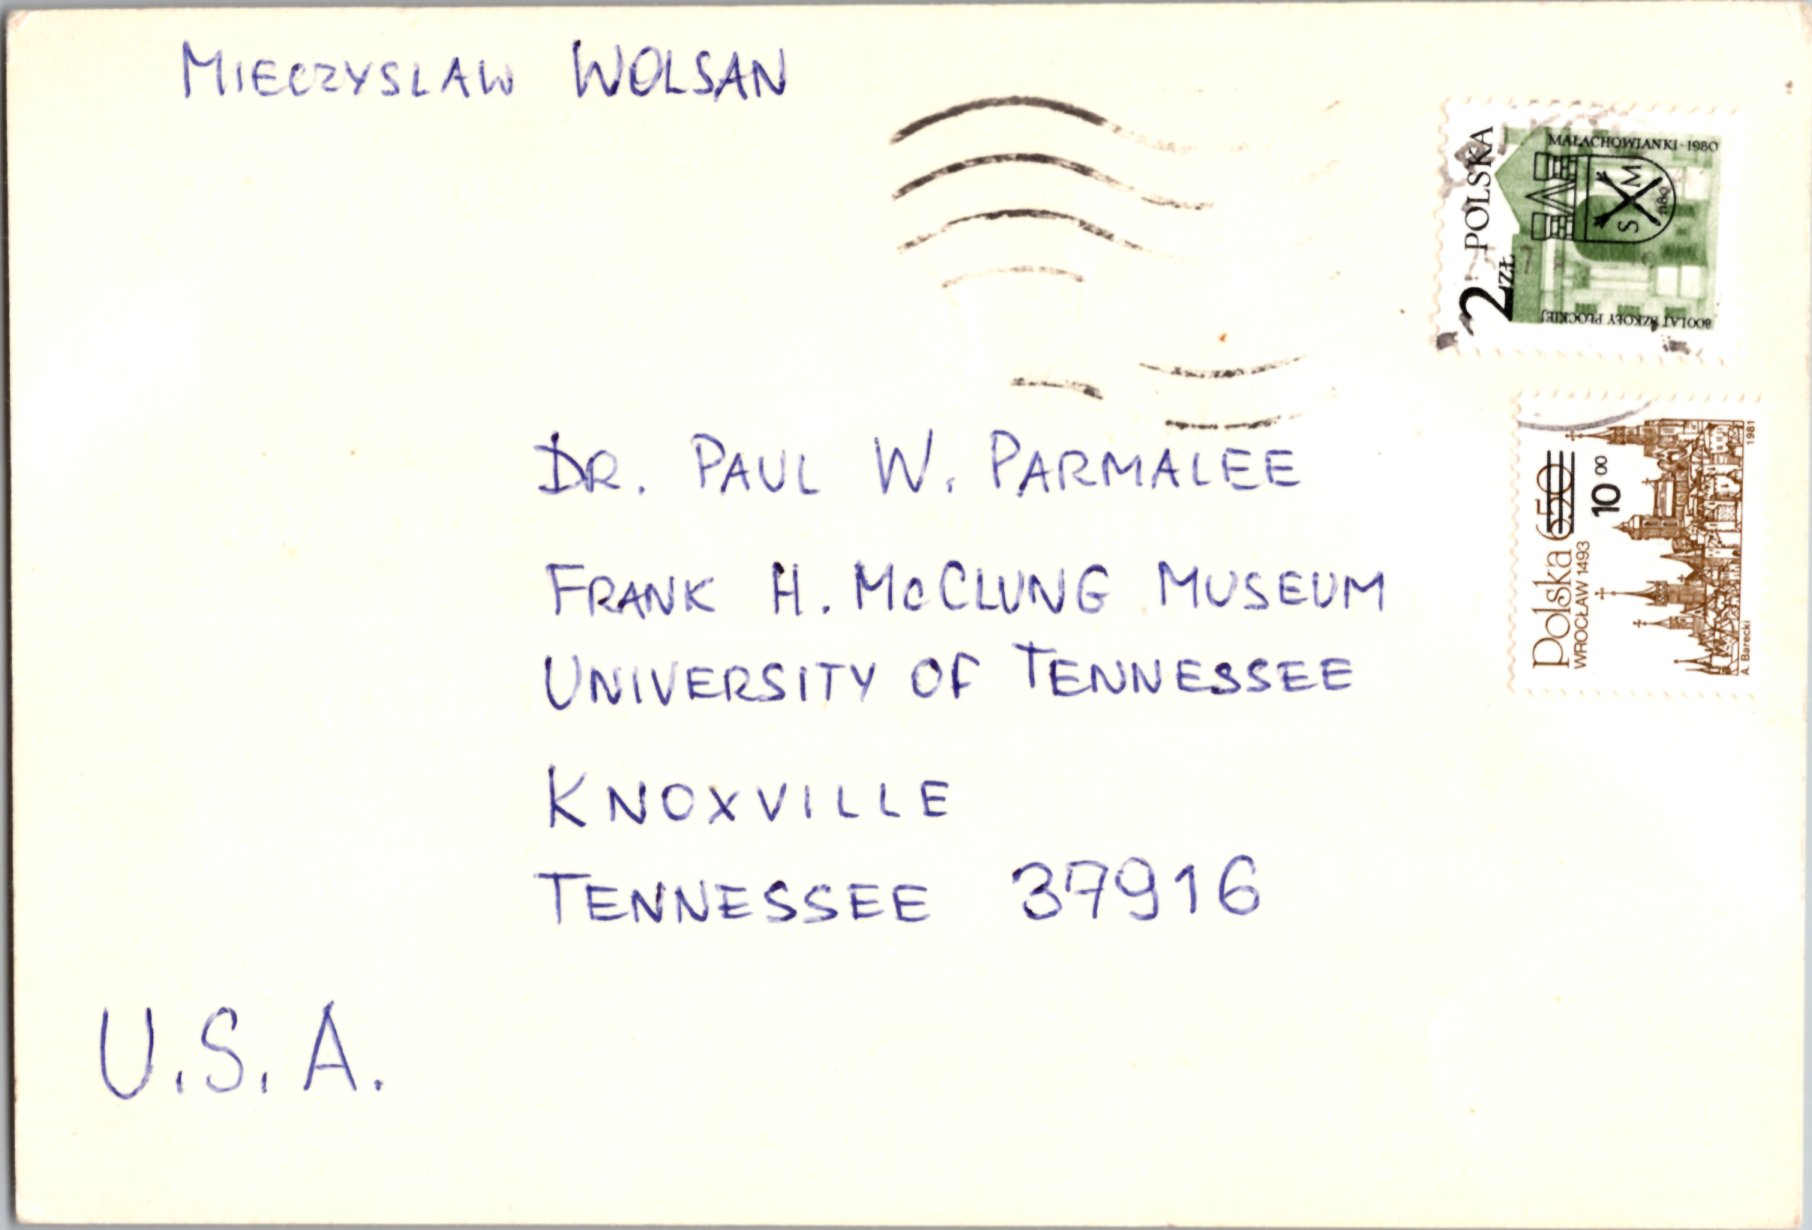 MIECZYSLAW WOLSAN
MAŁACHOWIANKI-1980
POLSKA
2 ZŁ
S M
1180
800 LAT SZKOŁY PŁOCKIEJ
DR. PAUL W. PARMALEE
FRANK H. MCCLUNG MUSEUM
UNIVERSITY OF TENNESSEE
KNOXVILLE
TENNESSEE 37916
U.S.A.
Polska 6.50
10 00
WROCŁAW 1493
1981
A. Barecki